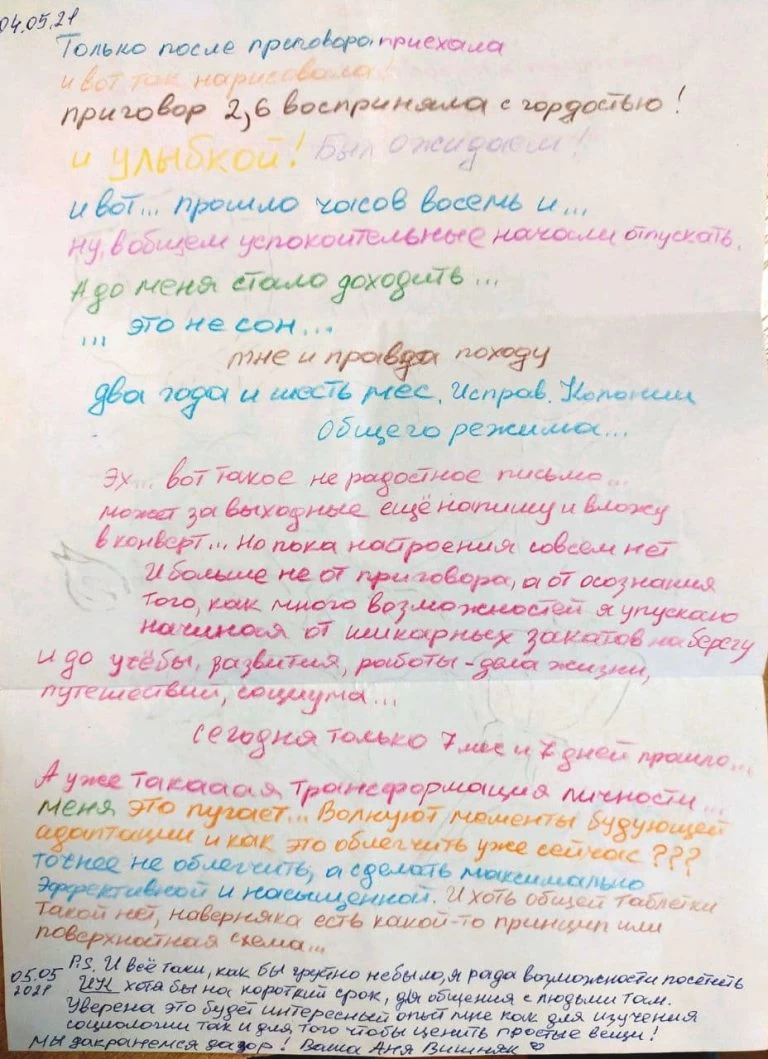 04.05.21
Только после приговора приехала
и вот так нарисовала!
приговор 2,6 восприняла с гордостью!
и улыбкой! Был ожидаем!
и вот... прошло часов восемь и...
ну, в общем успокоительные начали отпускать.
А до меня стало доходить...
... это не сон...
мне и правда походу
два года и шесть мес. Исправ. Колонии
Общего режима...
Эх... вот такое не радостное письмо...
может за выходные ещё напишу и вложу
в конверт... Но пока настроения совсем нет
И больше не от приговора, а от осознания
того, как много возможностей я упускаю
начиная от шикарных закатов на берегу
и до учёбы, развития, работы - дела жизни,
путешествий, социума...
Сегодня только 7 мес и 7 дней прошло...
А уже такаааая трансформация личности...
меня это пугает... Волнуют моменты будующей
адаптации и как это облегчить уже сейчас???
точнее не облегчить, а сделать максимально
эффективной и насыщенной. И хоть общей таблетки
такой нет, наверняка есть какой-то принцип или
поверхностная схема...
05.05 2021 P.S. И всё таки, как бы грустно небыло, я рада возможности посетить
ИК хотя бы на короткий срок, для общения с людьми там.
Уверена это будет интересный опыт мне как для изучения
социологии так и для того чтобы ценить простые вещи!
Мы дакранемся да зор! Ваша Аня Вишняк